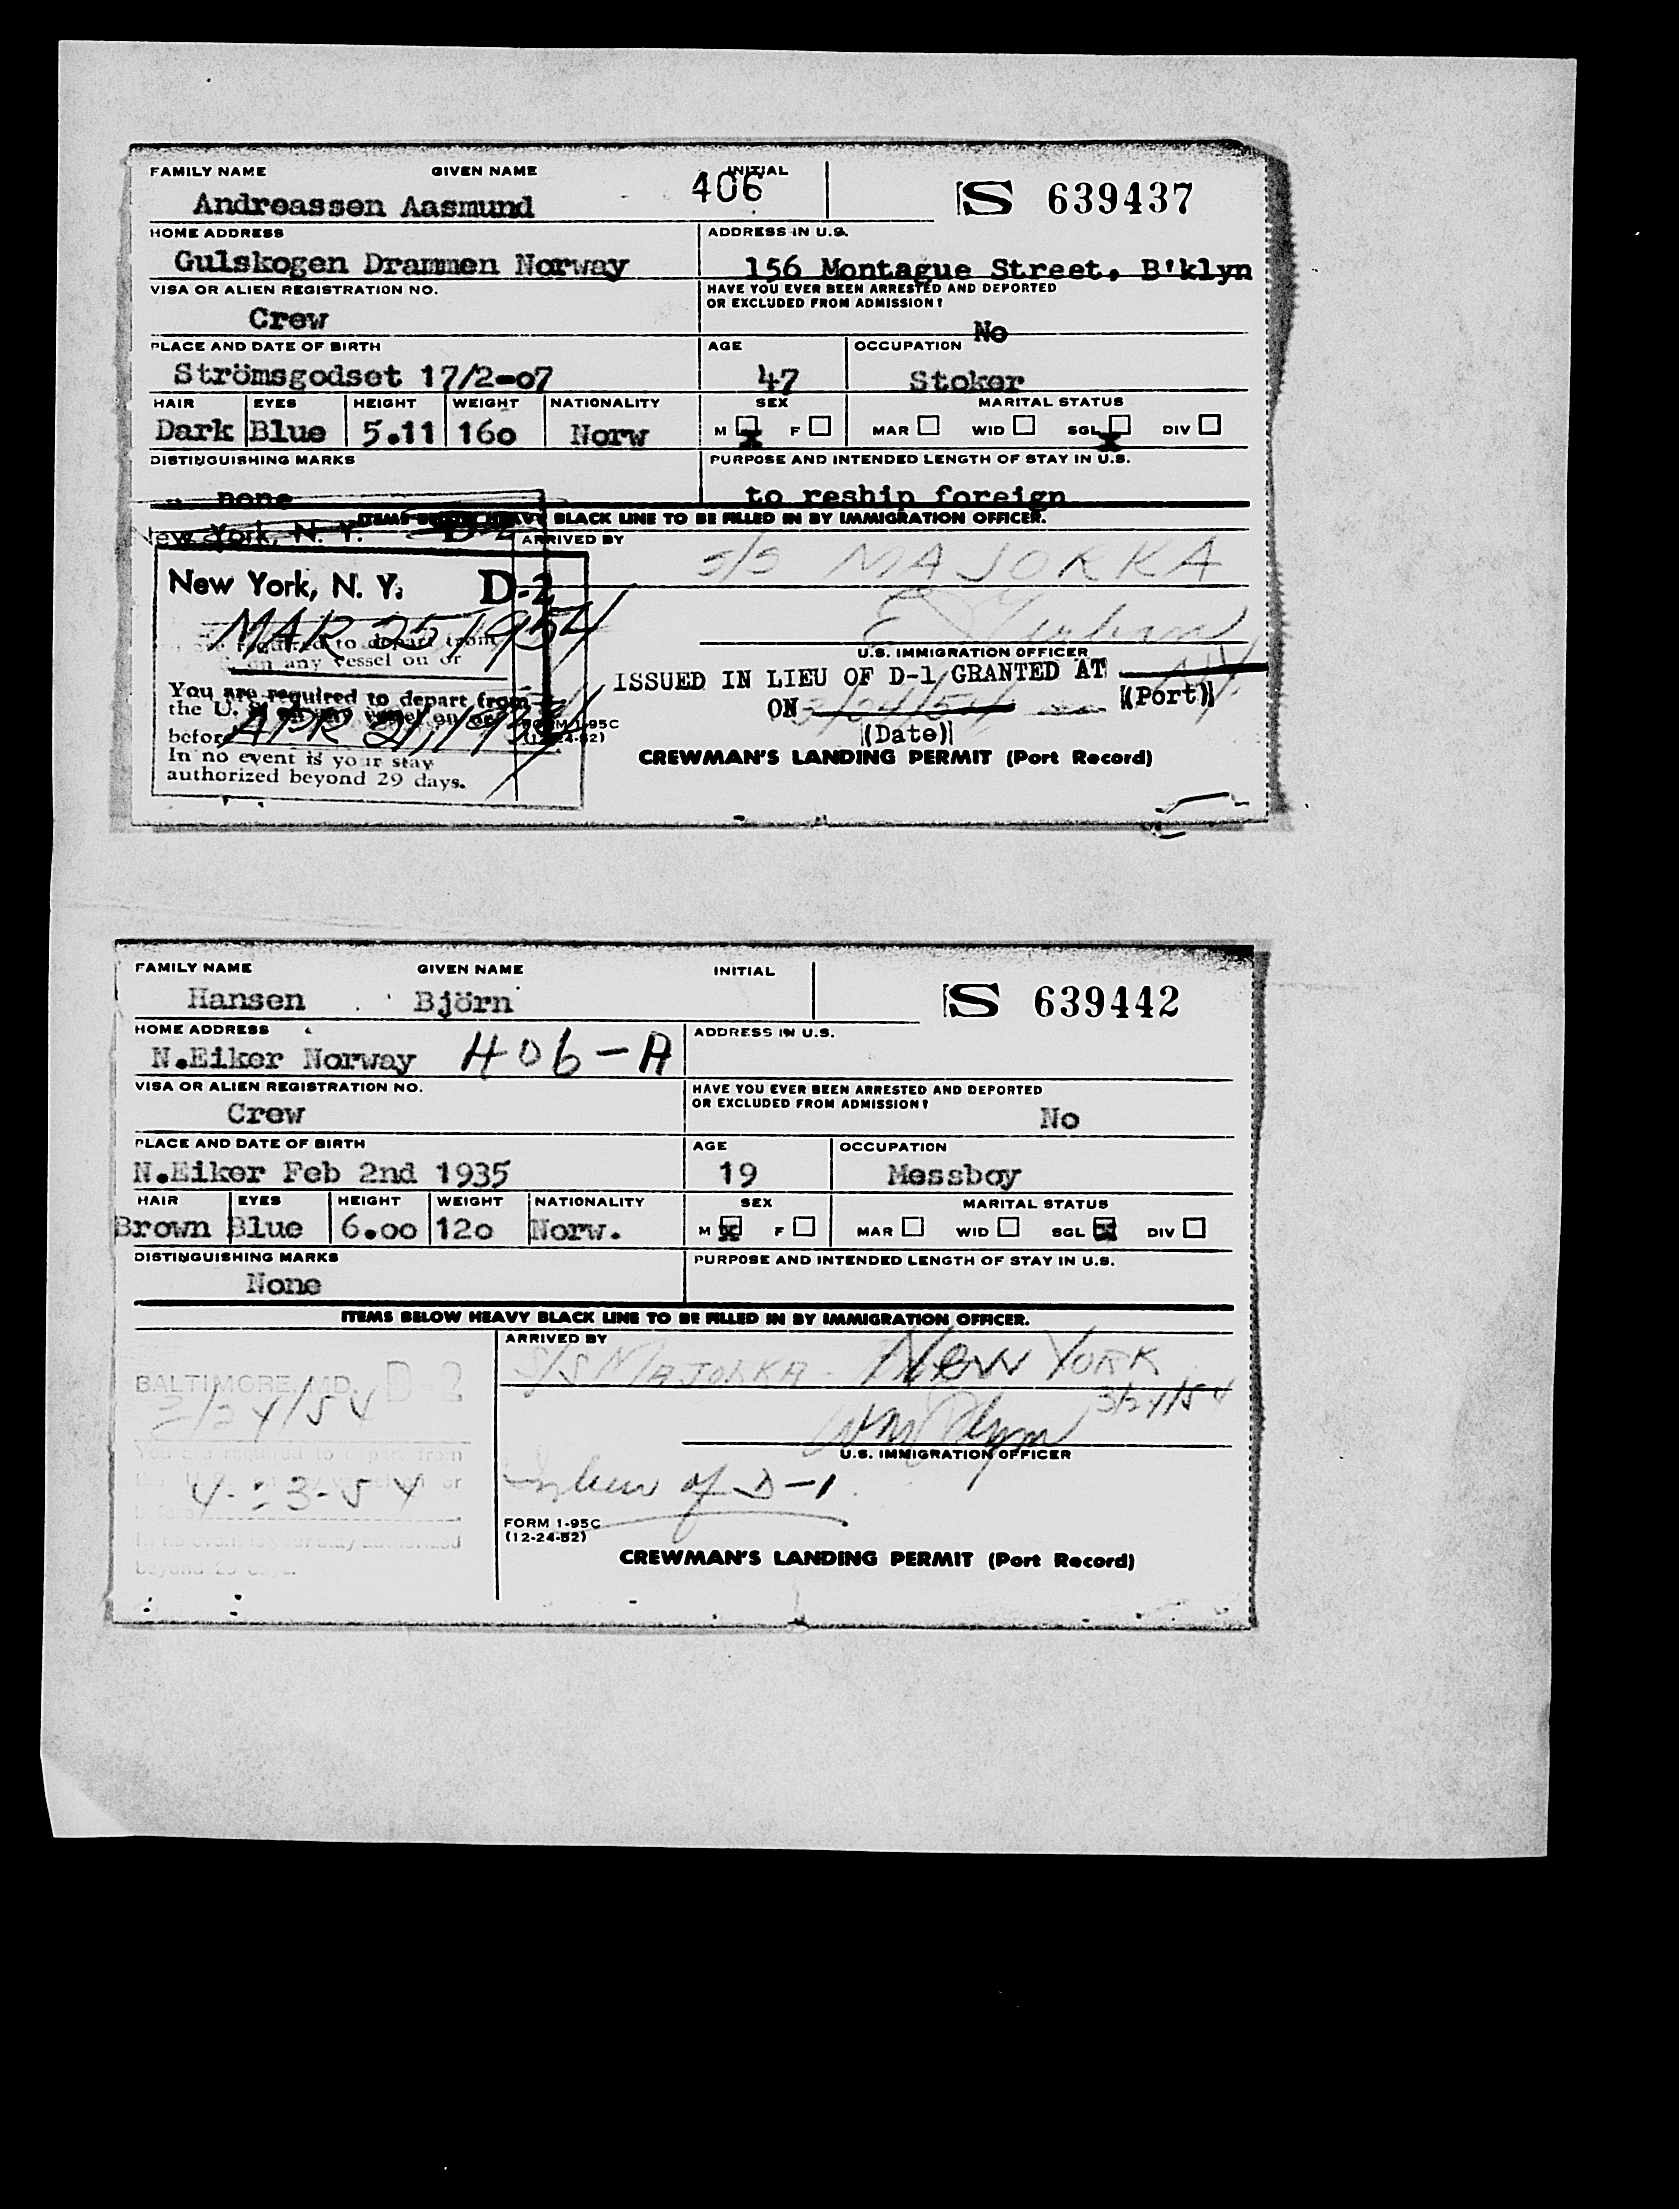 FAMILY NAME GIVEN NAME INITIAL
Andreassen Aasmund 406 S 639437
HOME ADDRESS ADDRESS IN U.S.
Gulskogen Drammen Norway 156 Montague Street, B'klyn
VISA OR ALIEN REGISTRATION NO. HAVE YOU EVER BEEN ARRESTED AND DEPORTED
OR EXCLUDED FROM ADMISSION?
Crew No
PLACE AND DATE OF BIRTH AGE OCCUPATION
Strömsgodset 17/2-07 47 Stoker
HAIR EYES HEIGHT WEIGHT NATIONALITY SEX MARITAL STATUS
Dark Blue 5.11 160 Norw M X F MAR WID SGL X DIV
DISTINGUISHING MARKS PURPOSE AND INTENDED LENGTH OF STAY IN U.S.
none to reship foreign
ITEMS BELOW HEAVY BLACK LINE TO BE FILLED IN BY IMMIGRATION OFFICER.
New York, N. Y. D-2
ARRIVED BY
S/S MAJORKA
New York, N. Y. D-2
MAR 25 1954
required to depart from
on any vessel on or
U.S. IMMIGRATION OFFICER
ISSUED IN LIEU OF D-1 GRANTED AT NY.
(Port)
You are required to depart from
the U. S. on any vessel on or
before APR 21, 1954
In no event is your stay
authorized beyond 29 days.
ON 3/24/54
(Date)
FORM I-95C
(12-24-52)
CREWMAN'S LANDING PERMIT (Port Record)
FAMILY NAME GIVEN NAME INITIAL
Hansen Björn S 639442
HOME ADDRESS ADDRESS IN U.S.
N.Eiker Norway 406-A
VISA OR ALIEN REGISTRATION NO. HAVE YOU EVER BEEN ARRESTED AND DEPORTED
OR EXCLUDED FROM ADMISSION?
Crew No
PLACE AND DATE OF BIRTH AGE OCCUPATION
N.Eiker Feb 2nd 1935 19 Messboy
HAIR EYES HEIGHT WEIGHT NATIONALITY SEX MARITAL STATUS
Brown Blue 6.00 120 Norw. M X F MAR WID SGL X DIV
DISTINGUISHING MARKS PURPOSE AND INTENDED LENGTH OF STAY IN U.S.
None
ITEMS BELOW HEAVY BLACK LINE TO BE FILLED IN BY IMMIGRATION OFFICER.
ARRIVED BY
S/S MAJORKA - NEW YORK
BALTIMORE, MD. D-2
3/24/54
3/24/54
U.S. IMMIGRATION OFFICER
You are required to depart from
4-23-54
In lieu of D-1
FORM I-95C
(12-24-52)
CREWMAN'S LANDING PERMIT (Port Record)